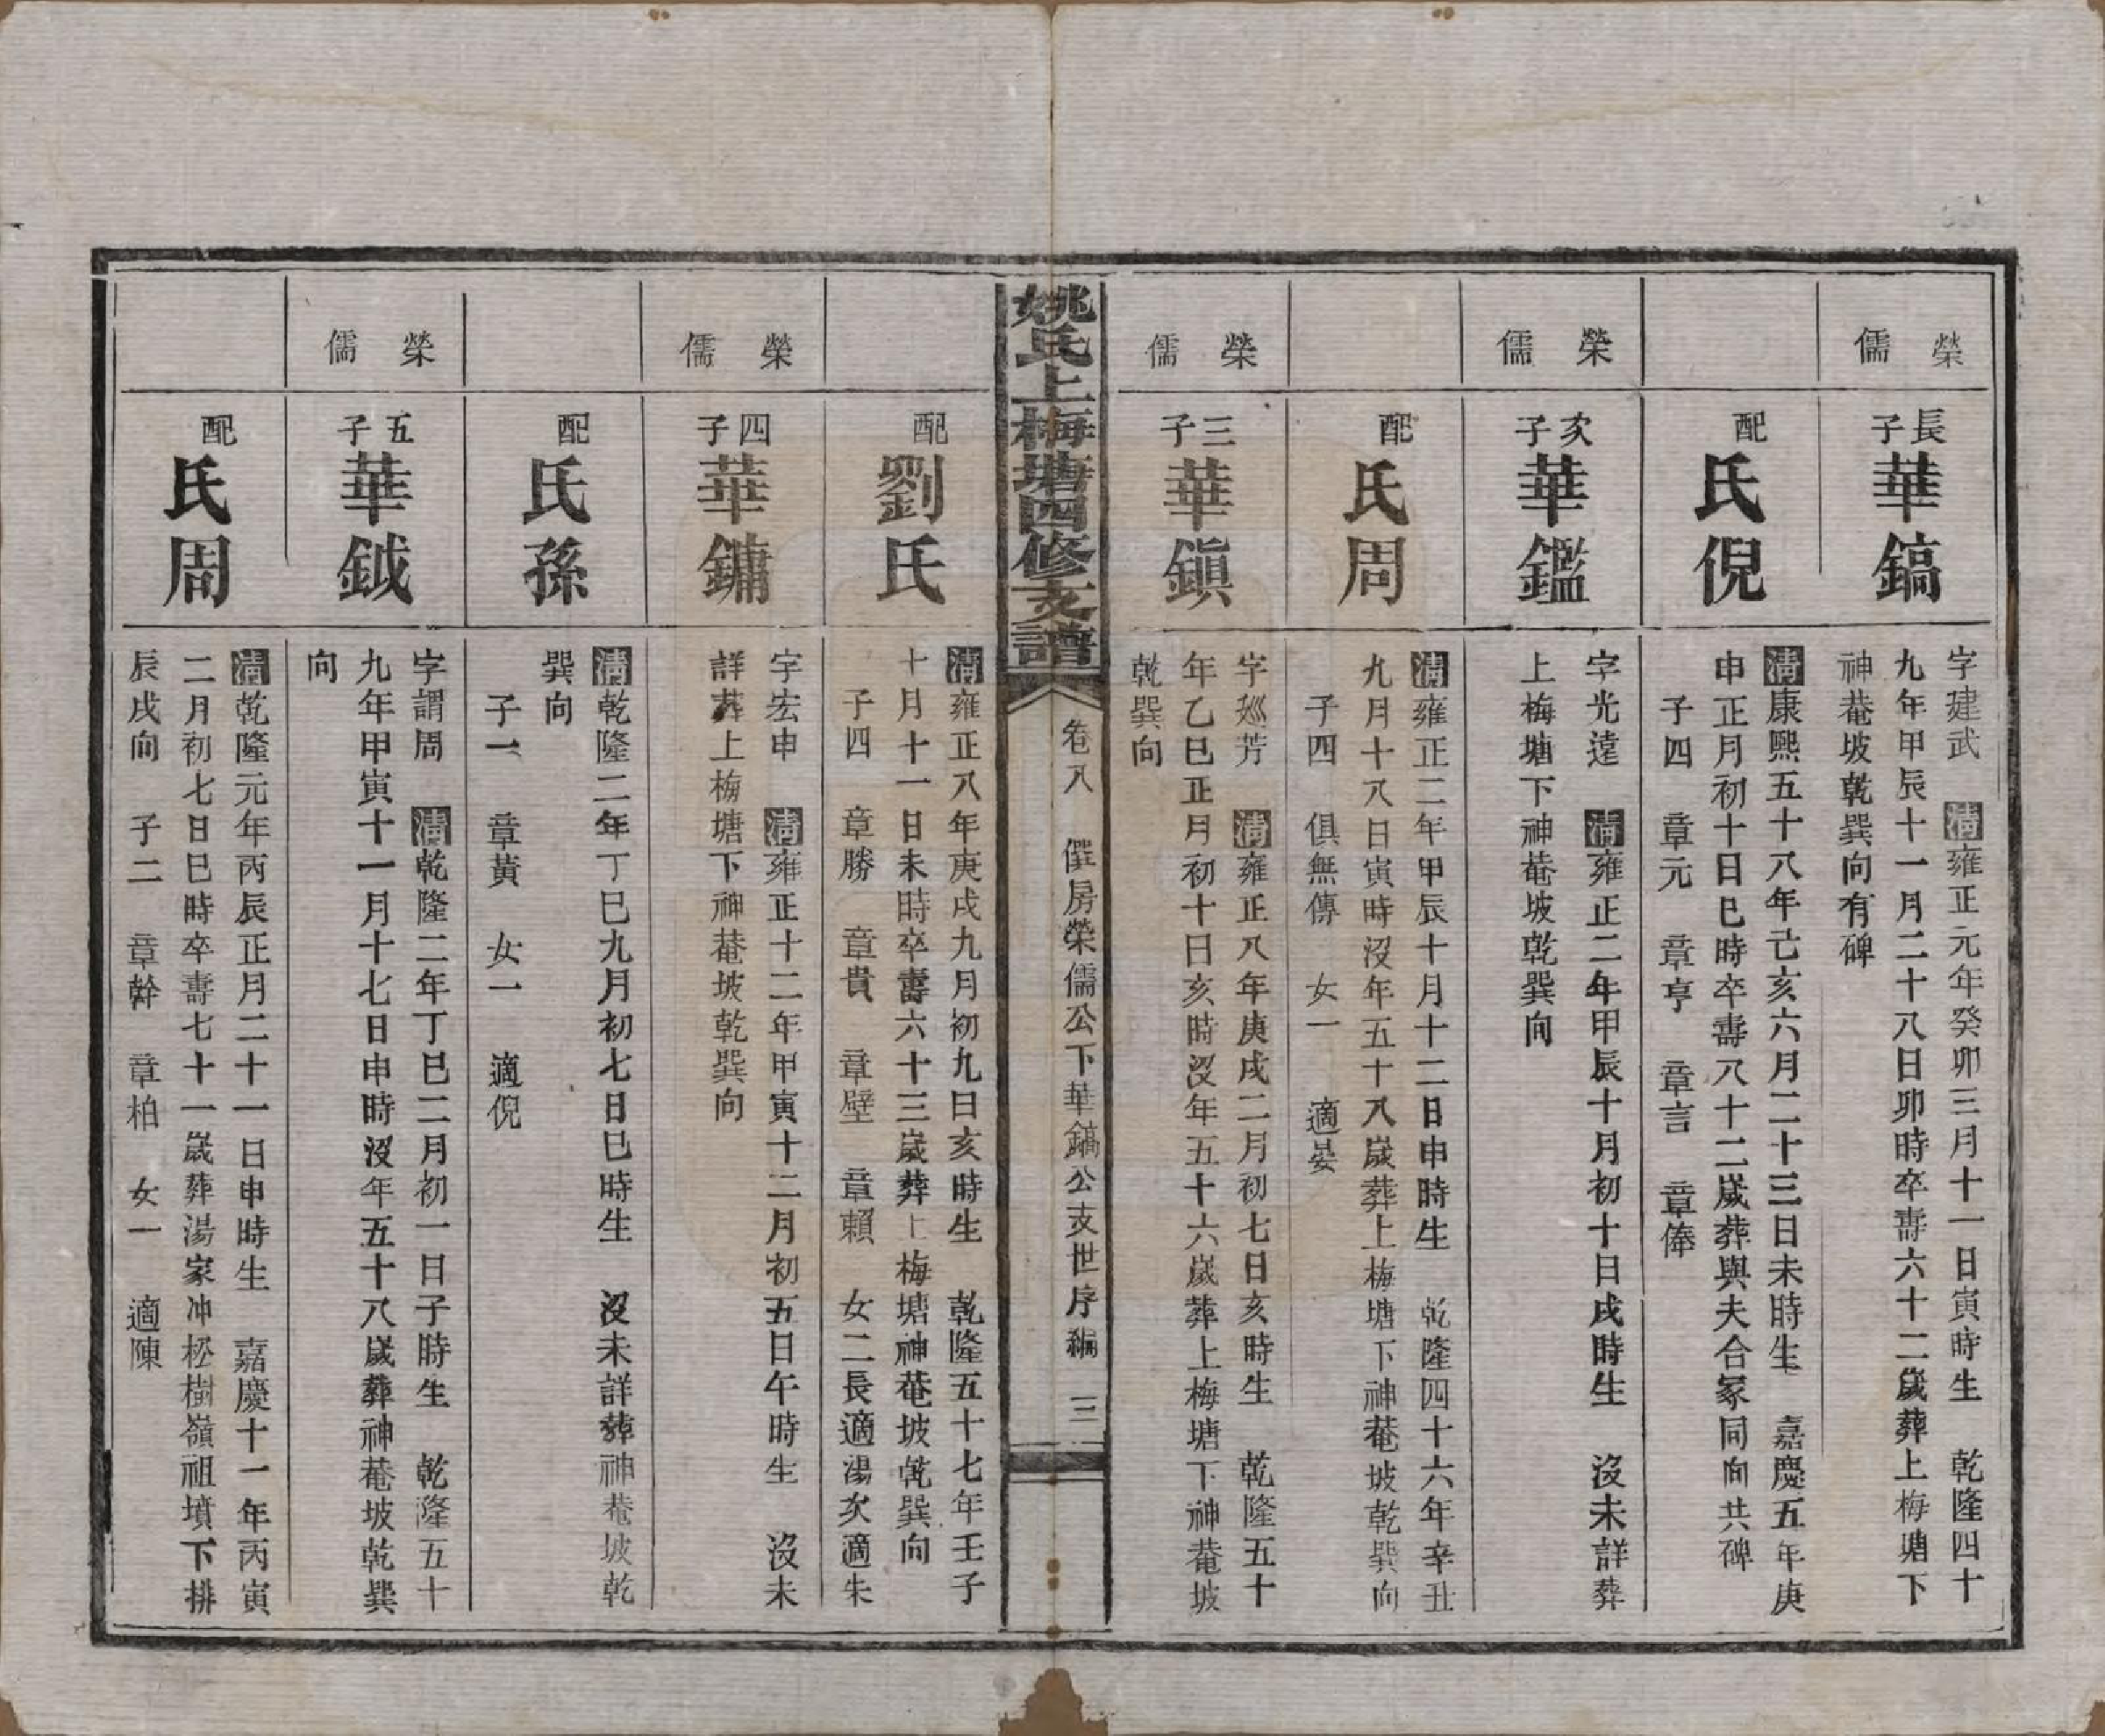 榮儒
長子華鎬
字建武　清雍正元年癸卯三月十一日寅時生　乾隆四十
九年甲辰十一月二十八日卯時卒壽六十二歲葬上梅塘下
神菴坡乾巽向有碑
配氏倪
清康熙五十八年己亥六月二十三日未時生　嘉慶五年庚
申正月初十日巳時卒壽八十二歲葬與夫合冢同向共碑
子四　章元　章亨　章言　章俸
榮儒
次子華鑑
字光遠　清雍正二年甲辰十月初十日戌時生　沒未詳葬
上梅塘下神菴坡乾巽向
配氏周
清雍正二年甲辰十月十二日申時生　乾隆四十六年辛丑
九月十八日寅時沒年五十八歲葬上梅塘下神菴坡乾巽向
子四　俱無傳　女一　適晏
榮儒
三子華鎮
字廵芳　清雍正八年庚戌二月初七日亥時生　乾隆五十
年乙巳正月初十日亥時沒年五十六歲葬上梅塘下神菴坡
乾巽向
姚氏上梅塘四修支譜
卷八　僎房榮儒公下華鎬公支世序編　三
配劉氏
清雍正八年庚戌九月初九日亥時生　乾隆五十七年壬子
十月十一日未時卒壽六十三歲葬上梅塘神菴坡乾巽向
子四　章勝　章貴　章壁　章賴　女二長適湯次適朱
榮儒
四子華鏞
字宏申　清雍正十二年甲寅十二月初五日午時生　沒未
詳葬上梅塘下神菴坡乾巽向
配氏孫
清乾隆二年丁巳九月初七日巳時生　沒未詳葬神菴坡乾
巽向
子一　章黃　女一　適倪
榮儒
五子華鉞
字謂周　清乾隆二年丁巳二月初一日子時生　乾隆五十
九年甲寅十一月十七日申時沒年五十八歲葬神菴坡乾巽
向
配氏周
清乾隆元年丙辰正月二十一日申時生　嘉慶十一年丙寅
二月初七日巳時卒壽七十一歲葬湯家冲松樹嶺祖墳下排
辰戌向　子二　章幹　章柏　女一　適陳